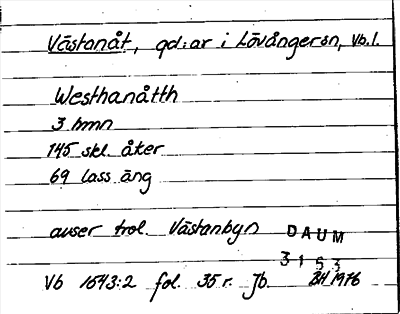 Västanåt, gd:ar i Lövångersn, Vb.l.
Westhanåtth
3 hmn
145 skl. åker
69 lass äng
avser trol. Västanbyn
DAUM
3153
Vb 1543:2 fol. 35 r. Jb. BH 1976